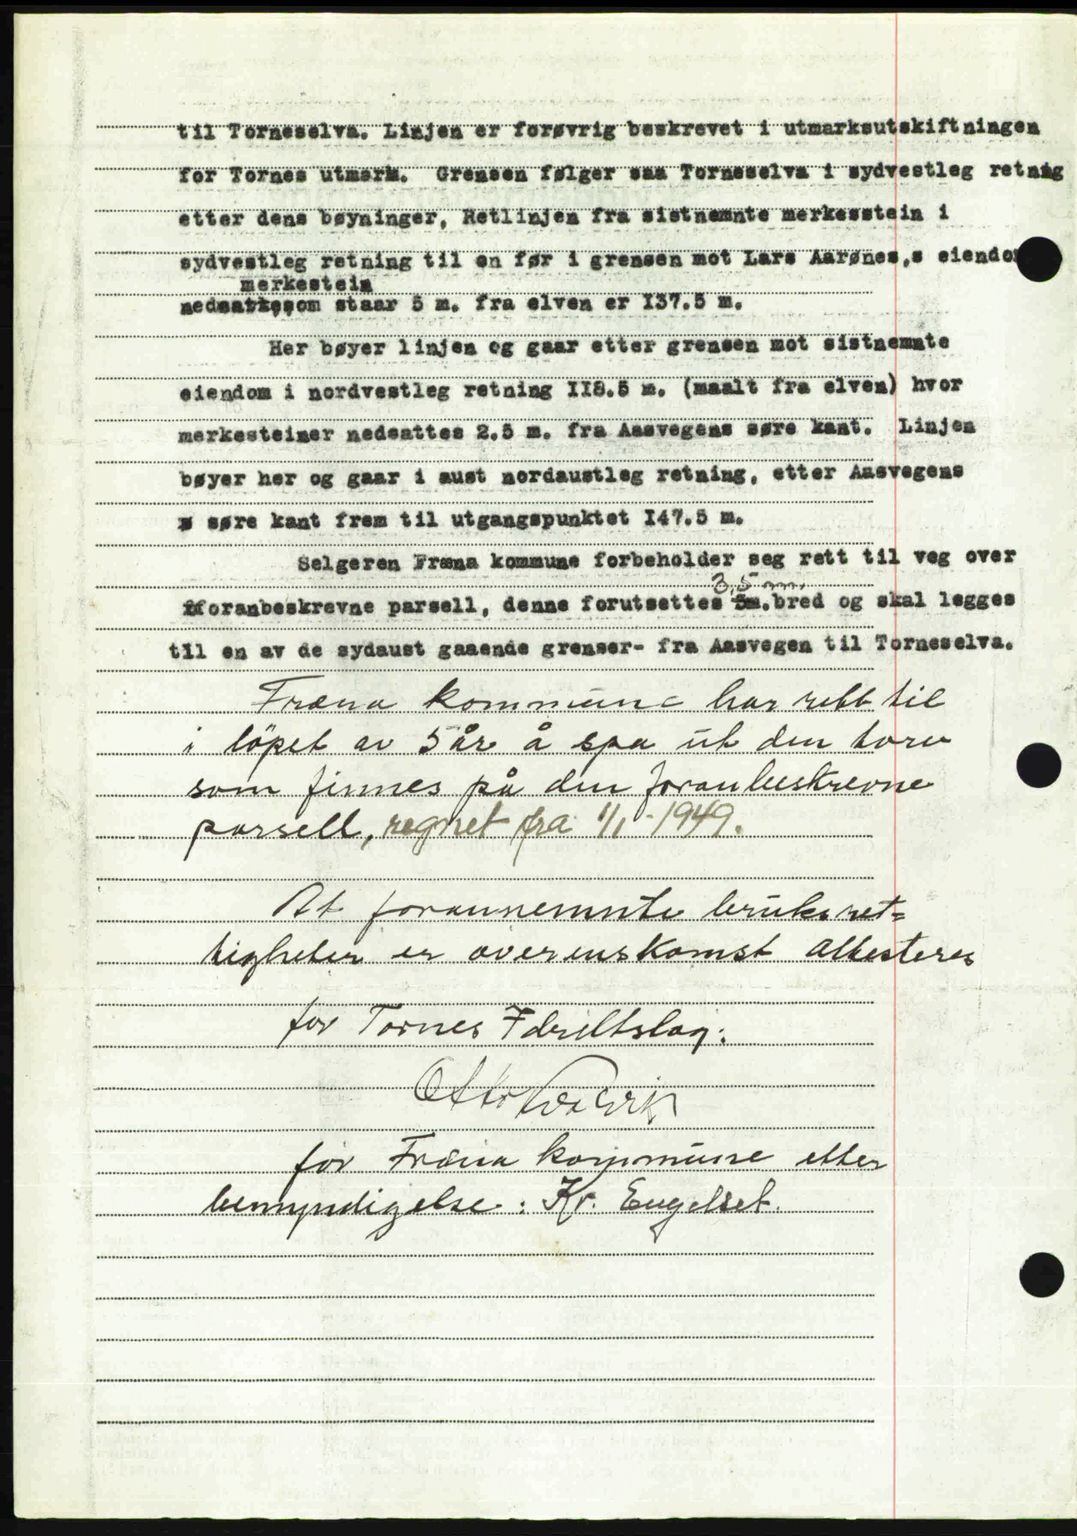 til Torneselva. Linjen er forøvrig beskrevet i utmarksutskiftningen
for Tornes utmark. Grensen følger saa Torneselva i sydvestleg retnig
etter dens bøyninger, Retlinjen fra sistnemnte merkesstein i
sydvestleg retning til en før i grensen mot Lars Aarønes,s eiendom
merkestein
nedsatt som staar 5 m. fra elven er I37.5 m.
Her bøyer linjen og gaar etter grensen mot sistnemnte
eiendom i nordvestleg retning II8.5 m. (maalt fra elven) hvor
merkesteiner nedsattes 2.5 m. fra Aasvegens søre kant. Linjen
bøyer her og gaar i aust nordaustleg retning, etter Aasvegens
søre kant frem til utgangspunktet I47.5 m.
Selgeren Fræna kommune forbeholder seg rett til veg over
3,5 m.
foranbeskrevne parsell, denne forutsettes 5m. bred og skal legges
til en av de sydaust gaaende grenser- fra Aasvegen til Torneselva.
Fræna kommune har rett til
i löpet av 5 år å spa ut den torv
som finnes på den foranbeskrevne
parsell, regnet fra 1/1-1949.
At forannemnte bruksret=
tigheter er overenskomst attesteres
for Tornes Idrettslag:
Otto
for Fræna kommune etter
bemyndigelse: Kr. Engelset.